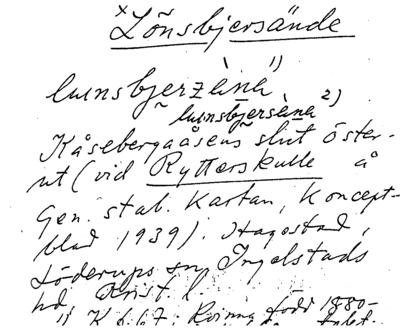 x Lönsbjersände
lunsbjerzäna 1)
lunsbjersäna 2)
Kåsebergaåsens slut öster-
ut (vid Rytterskulle å
Gen. stab. Kartan, Koncept-
blad 1939). Hagestad,
Löderups sn, Ingelstads
hd, Krist. l.
1) K 667: Kvinna född 1880-